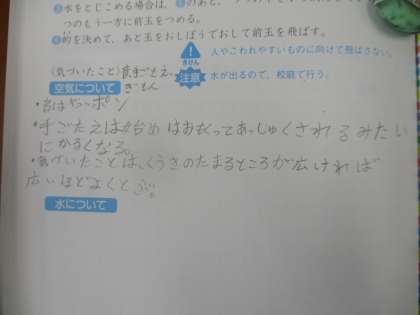 水をとじこめる場合は、
つのもう一方に前玉をつめる。
④的を決めて、あと玉をおしぼうでおして前玉を飛ばす。
! きけん 注意
人やこわれやすいものに向けて飛ばさない。
水が出るので、校庭で行う。
(気づいたこと)音手ごたえ
ぎもん
空気について
・音は ポン
・手ごたえは始めはおもくってあっしゅくされるみたい
にかるくなる。
・気づいたことは、くうきのたまるところが広ければ
広いほどよくとぶ。
水について